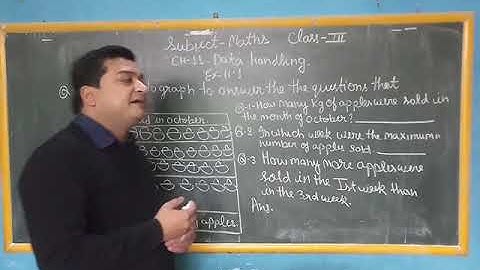 Subject-Maths Class-III
CH-11-Data handling.
Ex-11.1
Q. graph to answer the the questions that
in October
apples.
Q-1-How many kg of apples were sold in
the month of October?
Q-2 In which week were the maximum
number of apples sold.
Q-3 How many more apples were
sold in the Ist week than
in the 3rd week.
Ans.